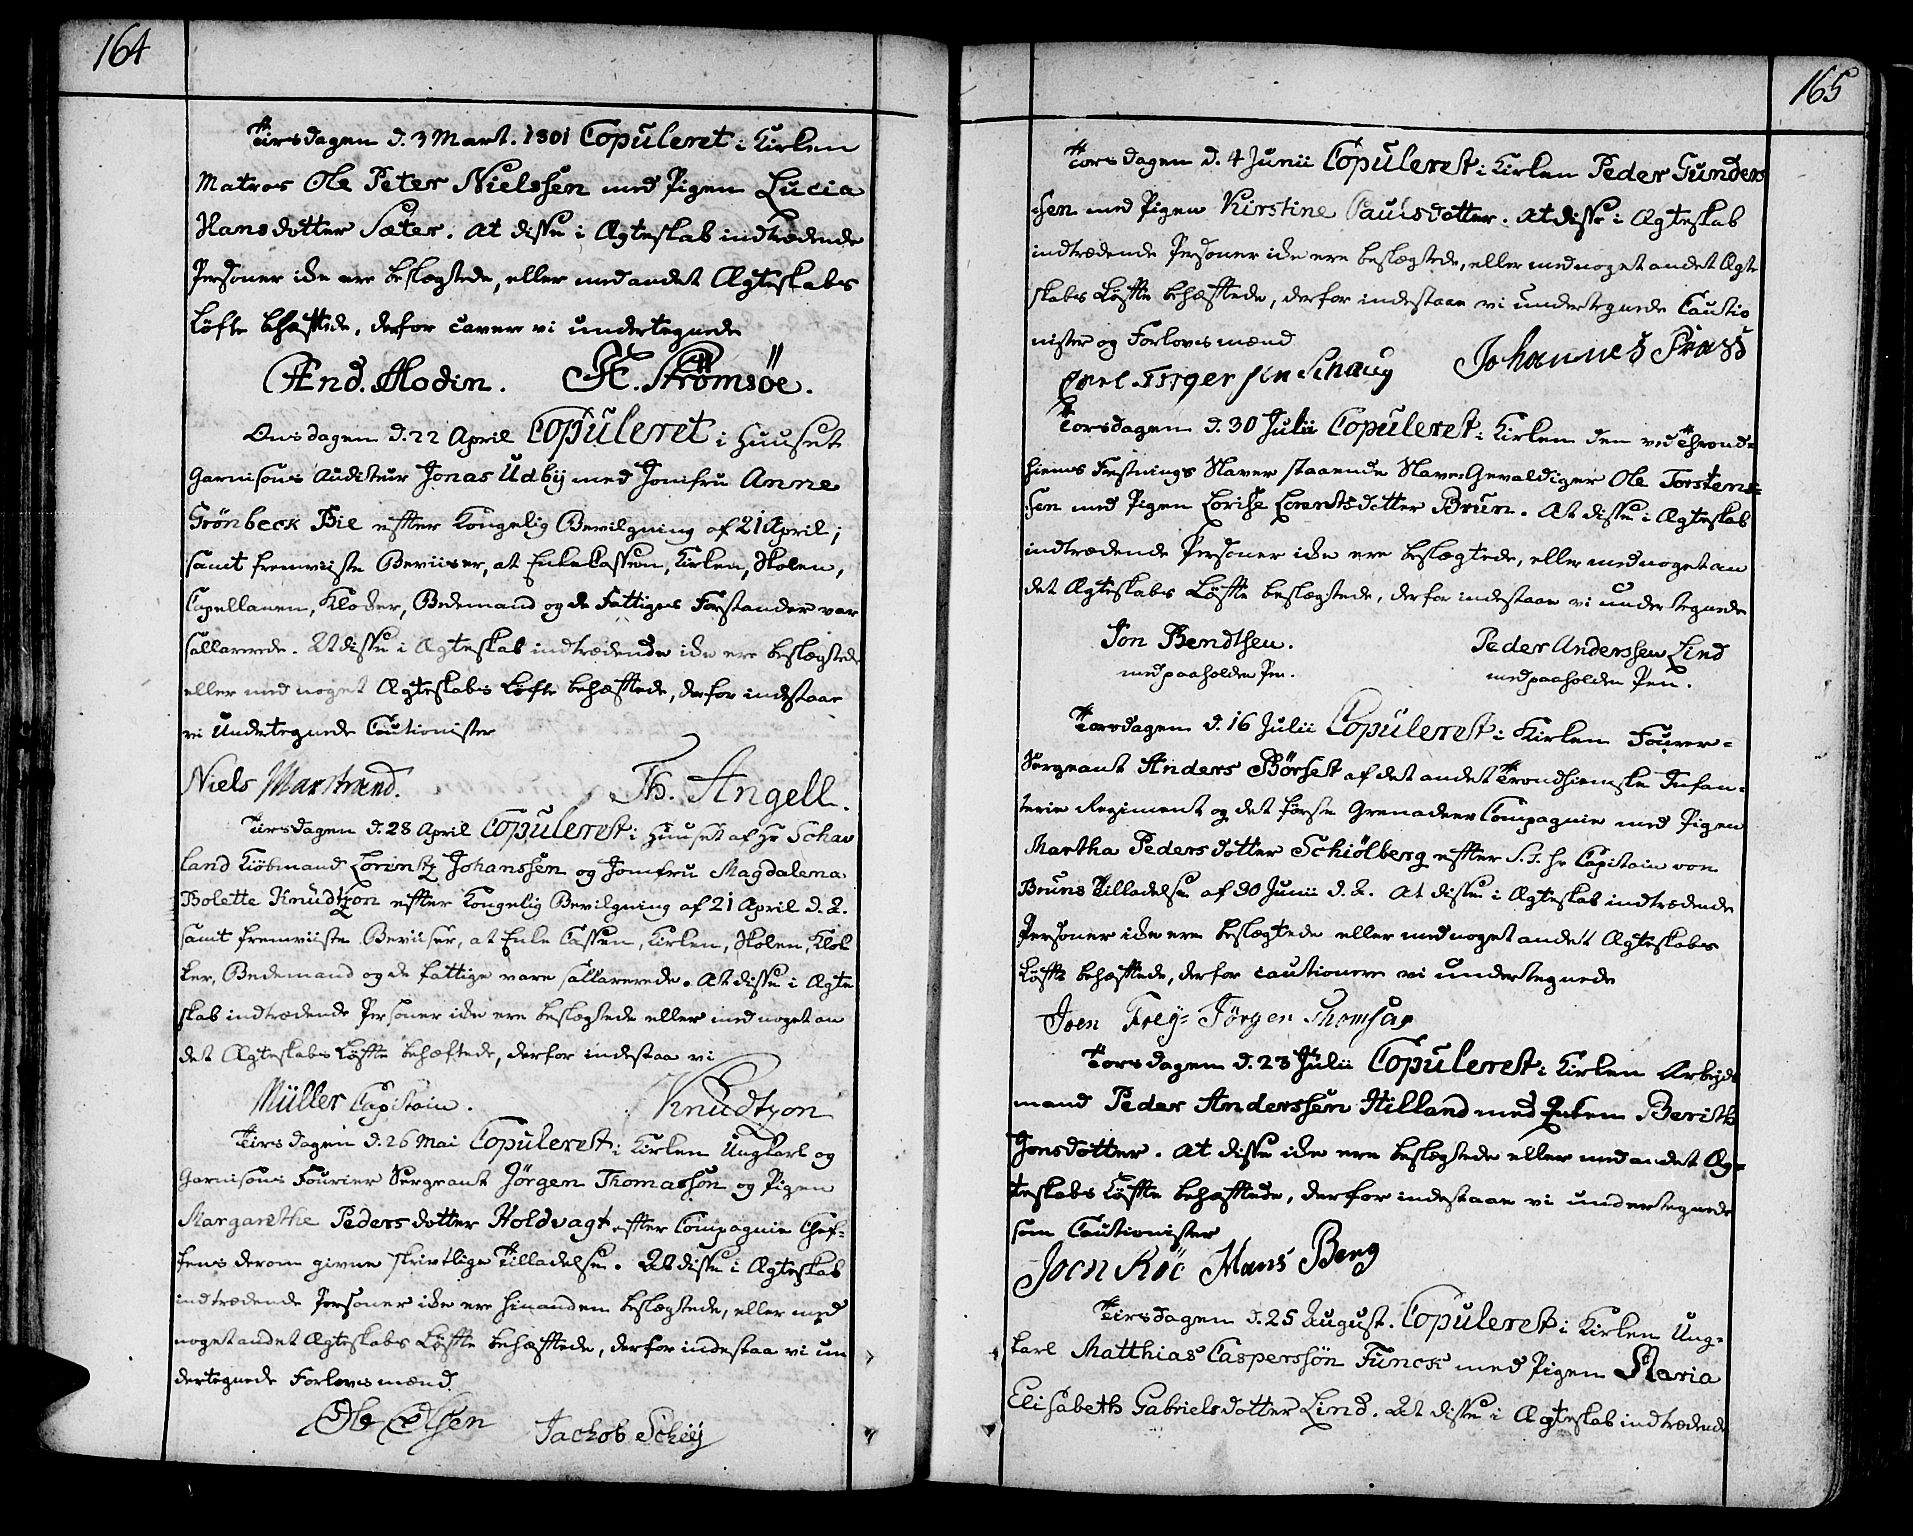 164
Tirsdagen d. 3 Mart. 1801 Copuleret i Kirken
Matros Ole Peter Nielssen med Pigen Lucia
Hansdotter Sæter. At disse i Ægteskab indtrædende
Personer ikke ere beslægtede, eller med andet Ægteskabs
Løfte behæftede, derfor caver vi undertegnede
And. Modin. H. Strömsöe.
Onsdagen d. 22 April Copuleret i Huuset
Garnisons Auditeur Jonas Udbÿ med Jomfru Anne
Grönbeck Bie effter Kongelig Bevilgning af 21 April;
samt fremviiste Beviiser, at EnkeCassen, Kirken, Skolen,
Capellanen, Klocker, Bedemand og de Fattiges Forstander var
sallarerede. At disse i Ægteskab indtrædende ikke ere beslægtede
eller med noget Ægteskabs Løfte behæftede, derfor indestaae
vi Undetegnede Cautionister
Niels Marstrand. Th. Angell.
Tirsdagen d. 28 April Copulerest i Huuset af Hr Schav
land Kiöbmand Lorentz Johanssen og Jomfru Magdalena
Bolette Knudtzon effter Kongelig Bevilgning af 21 April d. A.
samt fremviiste Beviiser, at Enke Cassen, Kirken, Skolen, Klok
ker, Bedemand og de fattige vare sallarerede. At disse i Ægte
skab indtrædende Personer ikke ere beslægtede eller med noget an
det Ægteskabs Løffte behæftede, derfor indestaa vi
Müller Capitain. Knudtzon
Tirsdagen d. 26 Mai Copulerest i Kirken Ungkarl og
Garnisons Fourier Sergeant Jörgen Thomassön og Pigen
Margarethe Pedersdotter Holdvagt effter Compagnie Chef-
fens derom givne skrivtlige Tilladelse. At disse i Ægteskab
indtrædende Personer ikke ere hinanden beslægtede, eller med
noget andet Ægteskabs Løffte behæfftede, derfor indestaa vi un
dertegnede Forlovsmænd.
Ole Olsen Jachob Schey
165
Torsdagen d. 4 Junii Copulerest i Kirken Peder Gunders
sen med Pigen Kirstine Paulsdotter. At disse i Ægteskab
indtrædende Personer ikke ere beslægtede, eller med noget andet Ægte
skabs Løffte behæfftede, derfor indestaae vi undertegnede Cautio
nister og Forlovsmænd
Torgersen Schaug Johannes
Torsdagen d. 30 Julii Copulerest i Kirken den ved Thrond-
hiems Festnings Slaver staaende Slave Gevaldiger Ole Torstens-
sen med Pigen Lorentsdotter Brun. At disse i Ægteskab
indtrædende Personer ikke ere beslægtede, eller med noget an
det Ægteskabs Løffte beslægtede, derfor indestaae vi undertegnede
Jon Bendtsen. Peder Anderssen Lind
med paaholden Pen. med paaholden Pen.
Torsdagen d. 16 Julii Copulerest i Kirken Fourer-
Sergeant Anders Börset af det andet Trondhiemske Infan-
terie Regiment og det første Grenadeer Compagnie med Pigen
Martha Pedersdotter Schiölberg effter S.T. Hr Capitain von
Bruns Tilladelse af 30 Junii d. A. At disse i Ægteskab indtrædende
Personer ikke ere beslægtede eller med noget andet Ægteskabs
Løffte behæfftede, derfor cautionere vi undertegnede
Joen Frey- Jörgen Thomsøn
Torsdagen d. 23 Julii Copulerest i Kirken Arbejds
mand Peder Anderssen Hilland med Enken Berith
Jonsdotter. At disse ikke ere beslægtede eller med andet Æg-
teskabs Løffte behæfftede, derfor indestaae vi undertegnede
som Cautionister
Joen Röe Hans Berg
Tirsdagen d. 25 August. Copulerest i Kirken Ung-
karl Matthias Casperssön Funck med Pigen Maria
Elisabeth Gabrielsdotter Lind. At disse i Ægteskab indtrædende